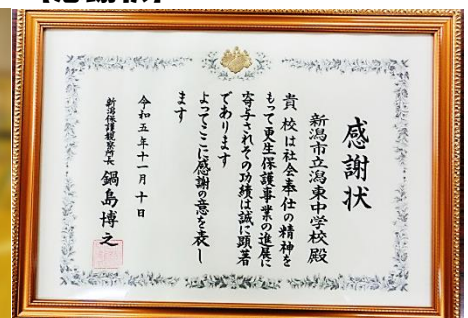 感謝状
新潟市立潟東中学校殿
貴校は社会奉仕の精神を
もって更生保護事業の進展に
寄与されその功績は誠に顕著
であります
よってここに感謝の意を表し
ます
令和五年十一月十日
新潟保護観察所長 鍋島博之